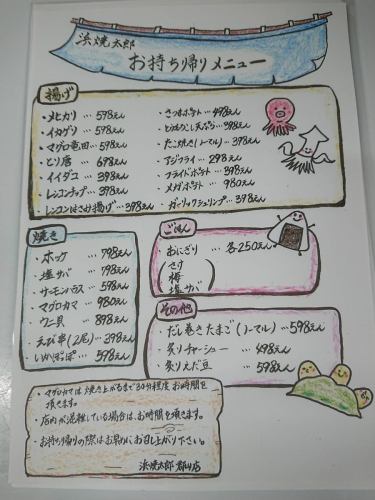 浜焼太郎
お持ち帰りメニュー
揚げ
・メヒカリ … 598えん
・イカゲソ … 598えん
・マグロ竜田 … 598えん
・とり唐 … 698えん
・イイダコ … 398えん
・レンコンチップ … 398えん
・レンコンはさみ揚げ … 398えん
・さつまポテト … 498えん
・とうもろこし天ぷら … 398えん
・たこ焼き(ノーマル) … 398えん
・アジフライ … 298えん
・フライドポテト … 398えん
・メガポテト … 980えん
・ガーリックシュリンプ … 398えん
焼き
・ホッケ … 798えん
・塩サバ … 798えん
・サーモンハラス … 598えん
・マグロカマ … 980えん
・ウニ貝 … 898えん
・えび串(2尾) … 398えん
・いかぽっぽ … 598えん
ごはん
・おにぎり … 各250えん
(さけ
梅
塩サバ)
その他
・だし巻きたまご(ノーマル) … 598えん
・炙りチャーシュー … 498えん
・炙りえだ豆 … 598えん
・マグロカマは焼き上がるまで30分程度お時間を
頂きます。
・店内が混雑している場合は、お時間を頂きます。
・お持ち帰りの際はお早めにお召し上がり下さい。
浜焼太郎 郡山店